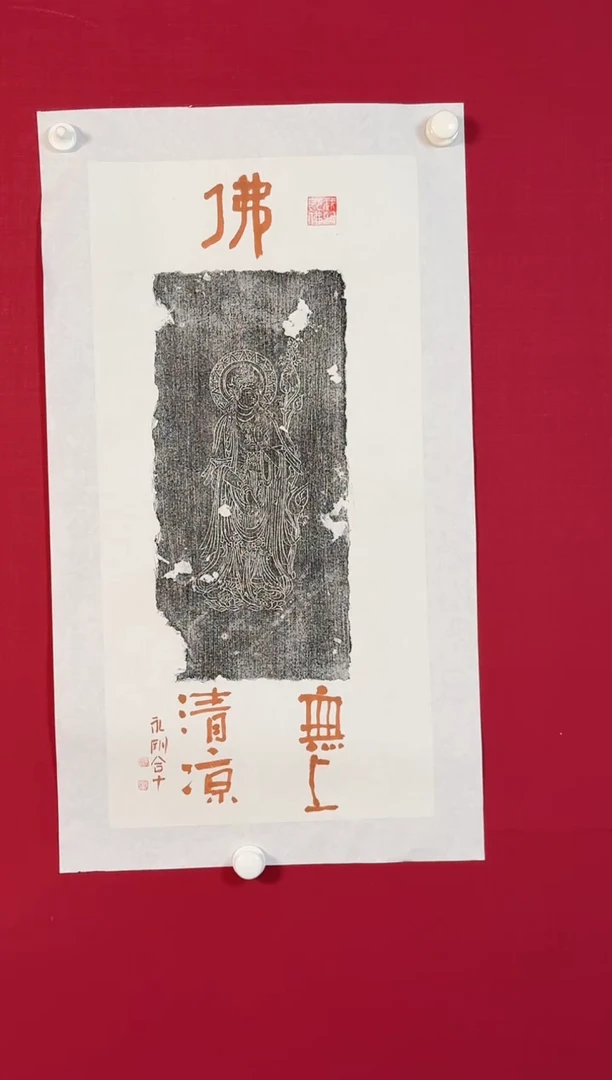 佛
無上
清涼
永刚合十